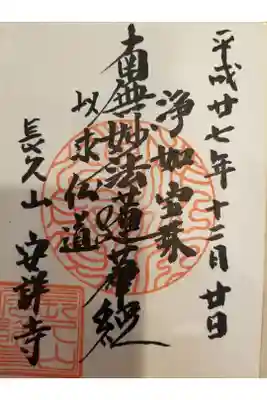 平成廿七年十二月廿日
浄如宝珠
南無妙法蓮華経
以求仏道
長久山 安詳寺